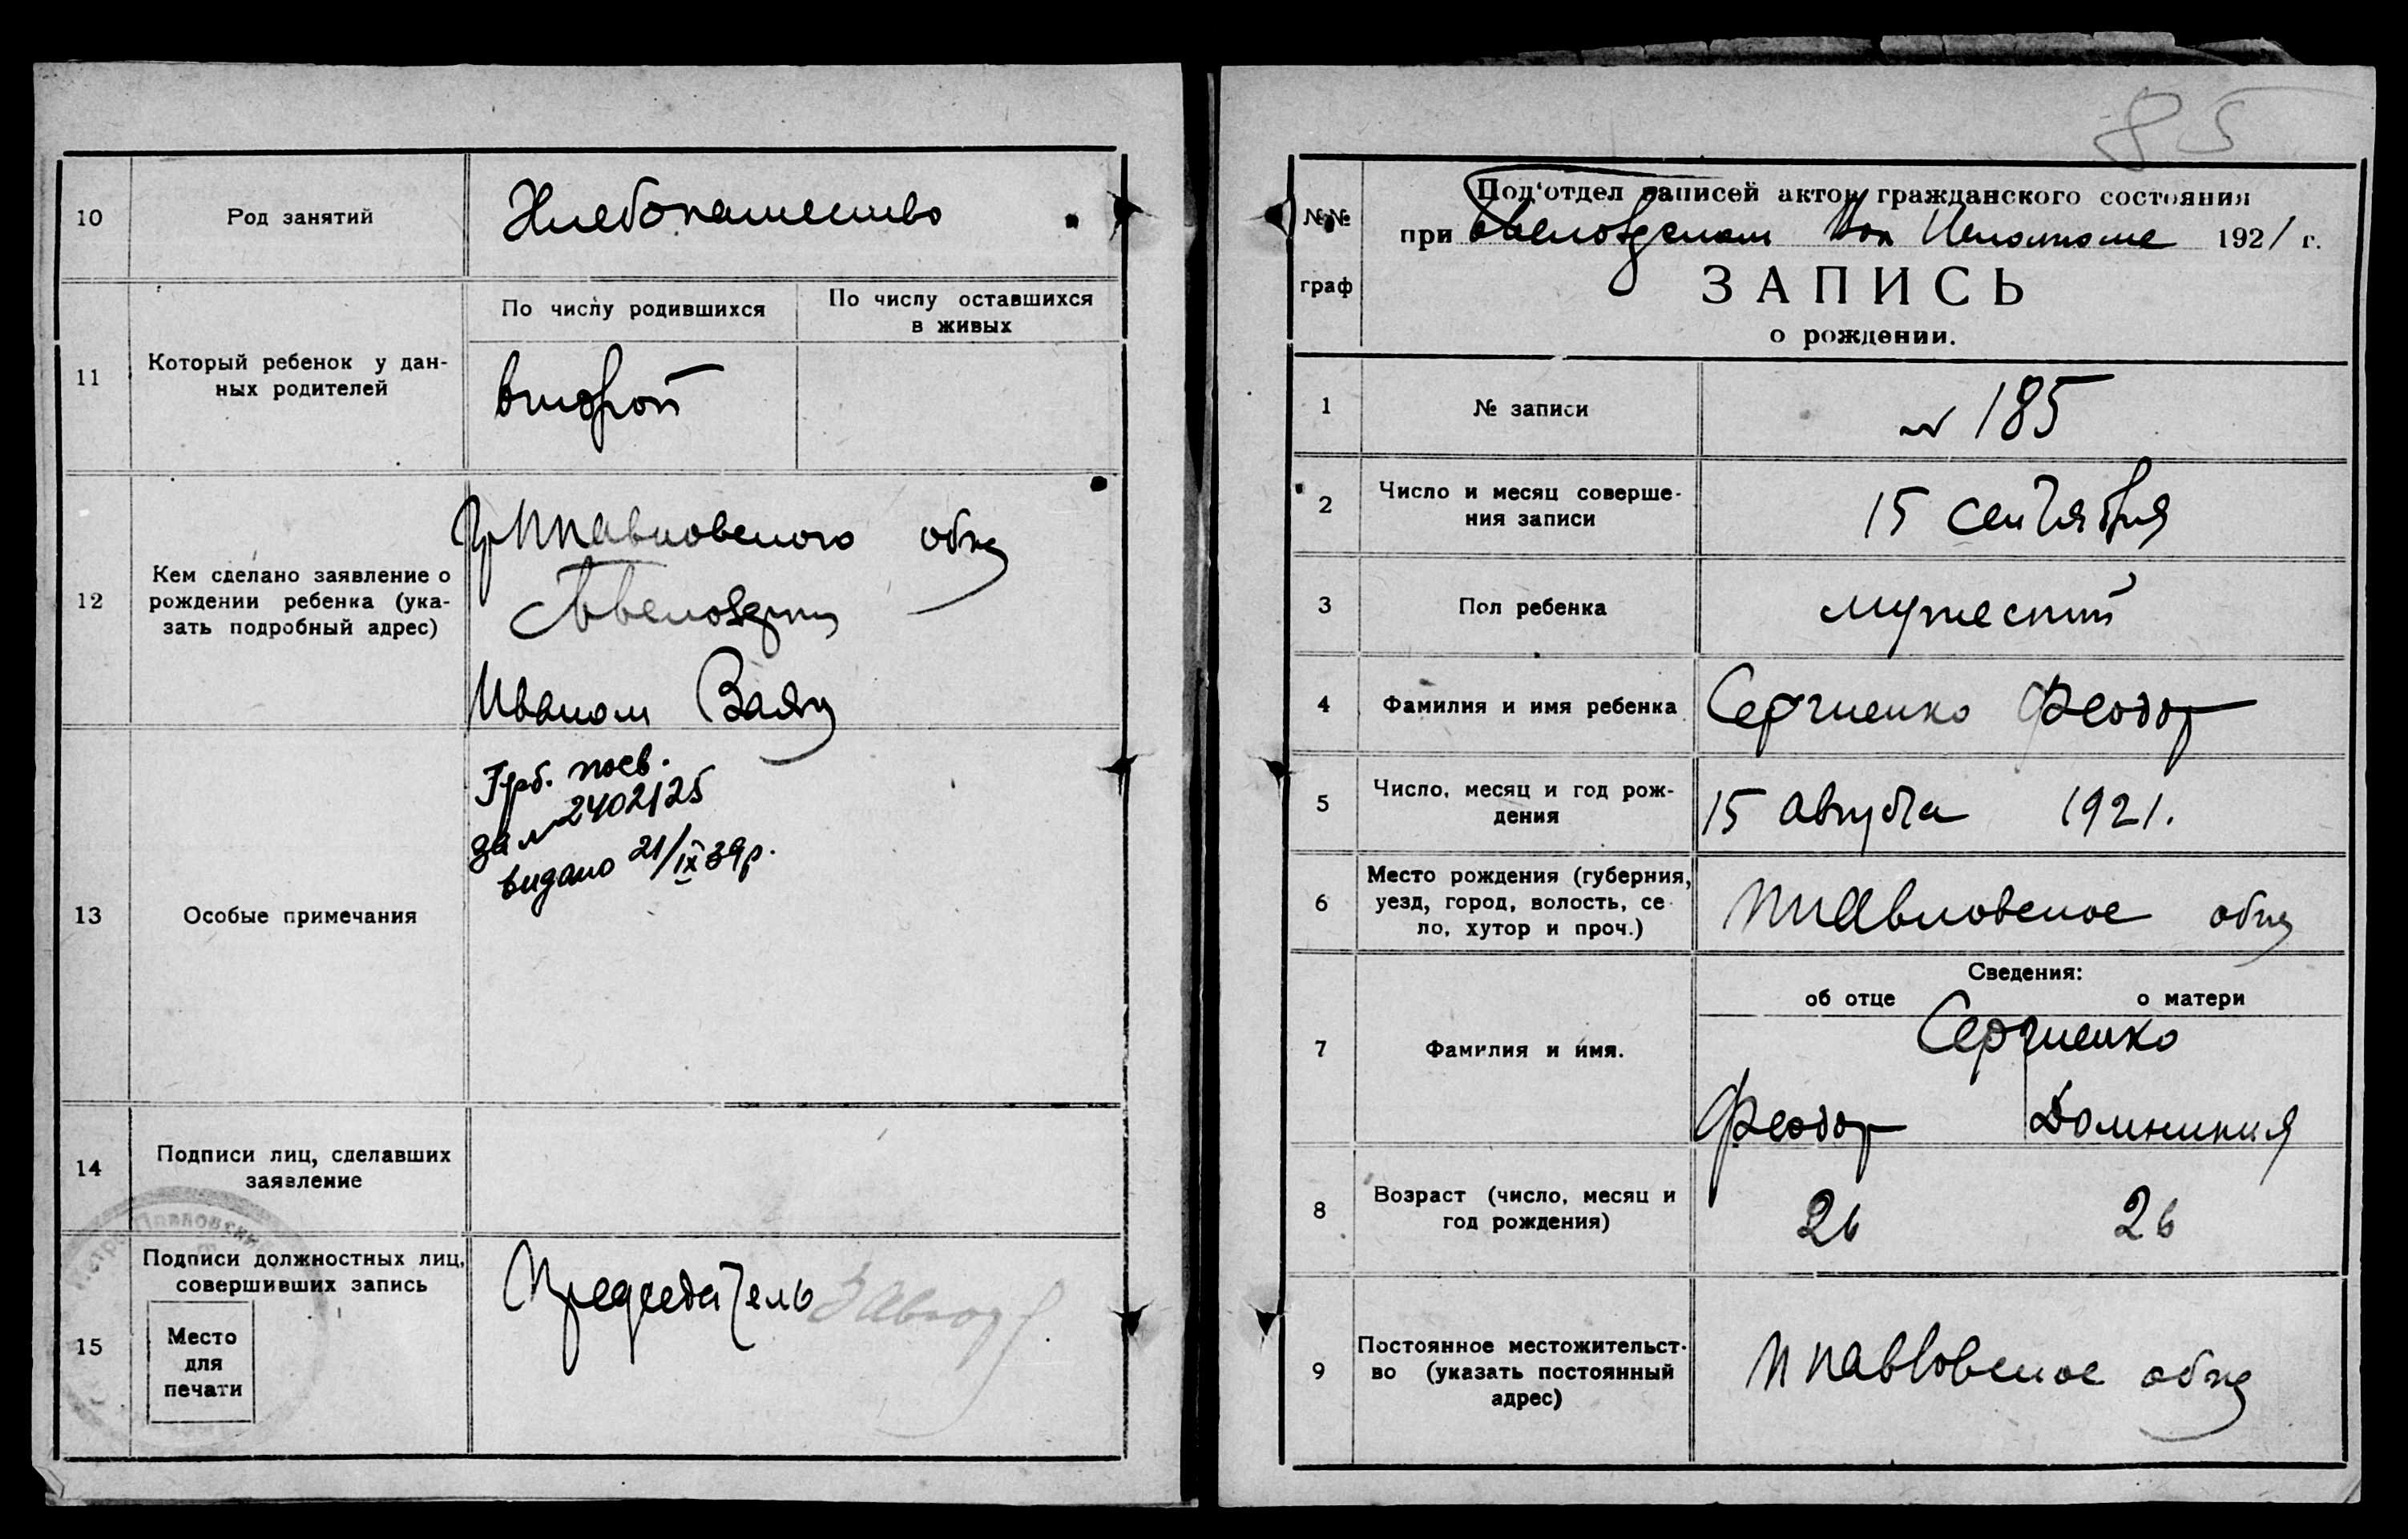 10
Род занятий
Хлебопашество
11
Который ребенок у дан-
ных родителей
По числу родившихся
По числу оставшихся
в живых
второй
12
Кем сделано заявление о
рождении ребенка (ука-
зать подробный адрес)
Иваном
13
Особые примечания
видано 21/IX 39р.
14
Подписи лиц, сделавших
заявление
15
Подписи должностных лиц,
совершивших запись
Место
для
печати
Председатель
85
№№
граф
Под'отдел записей актов гражданского состояния
при 1921 г.
ЗАПИСЬ
о рождении.
1
№ записи
№ 185
2
Число и месяц соверше-
ния записи
15 сентября
3
Пол ребенка
мужеский
4
Фамилия и имя ребенка
Сергиенко Феодор
5
Число, месяц и год рож-
дения
15 августа 1921.
6
Место рождения (губерния,
уезд, город, волость, се-
ло, хутор и проч.)
Сведения:
об отце
о матери
7
Фамилия и имя.
Сергиенко
Феодор
Домникия
8
Возраст (число, месяц и
год рождения)
26
26
9
Постоянное местожительст-
во (указать постоянный
адрес)